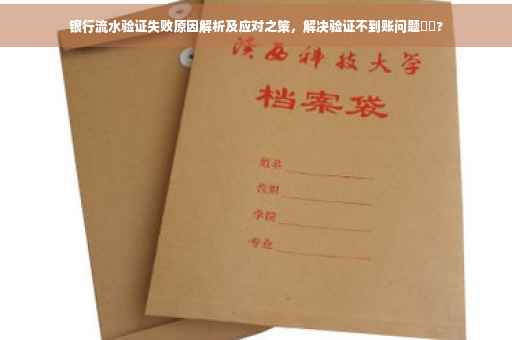 银行流水验证失败原因解析及应对之策，解决验证不到账问题▯▯?
陕西科技大学
档案袋
姓名
学院
专业